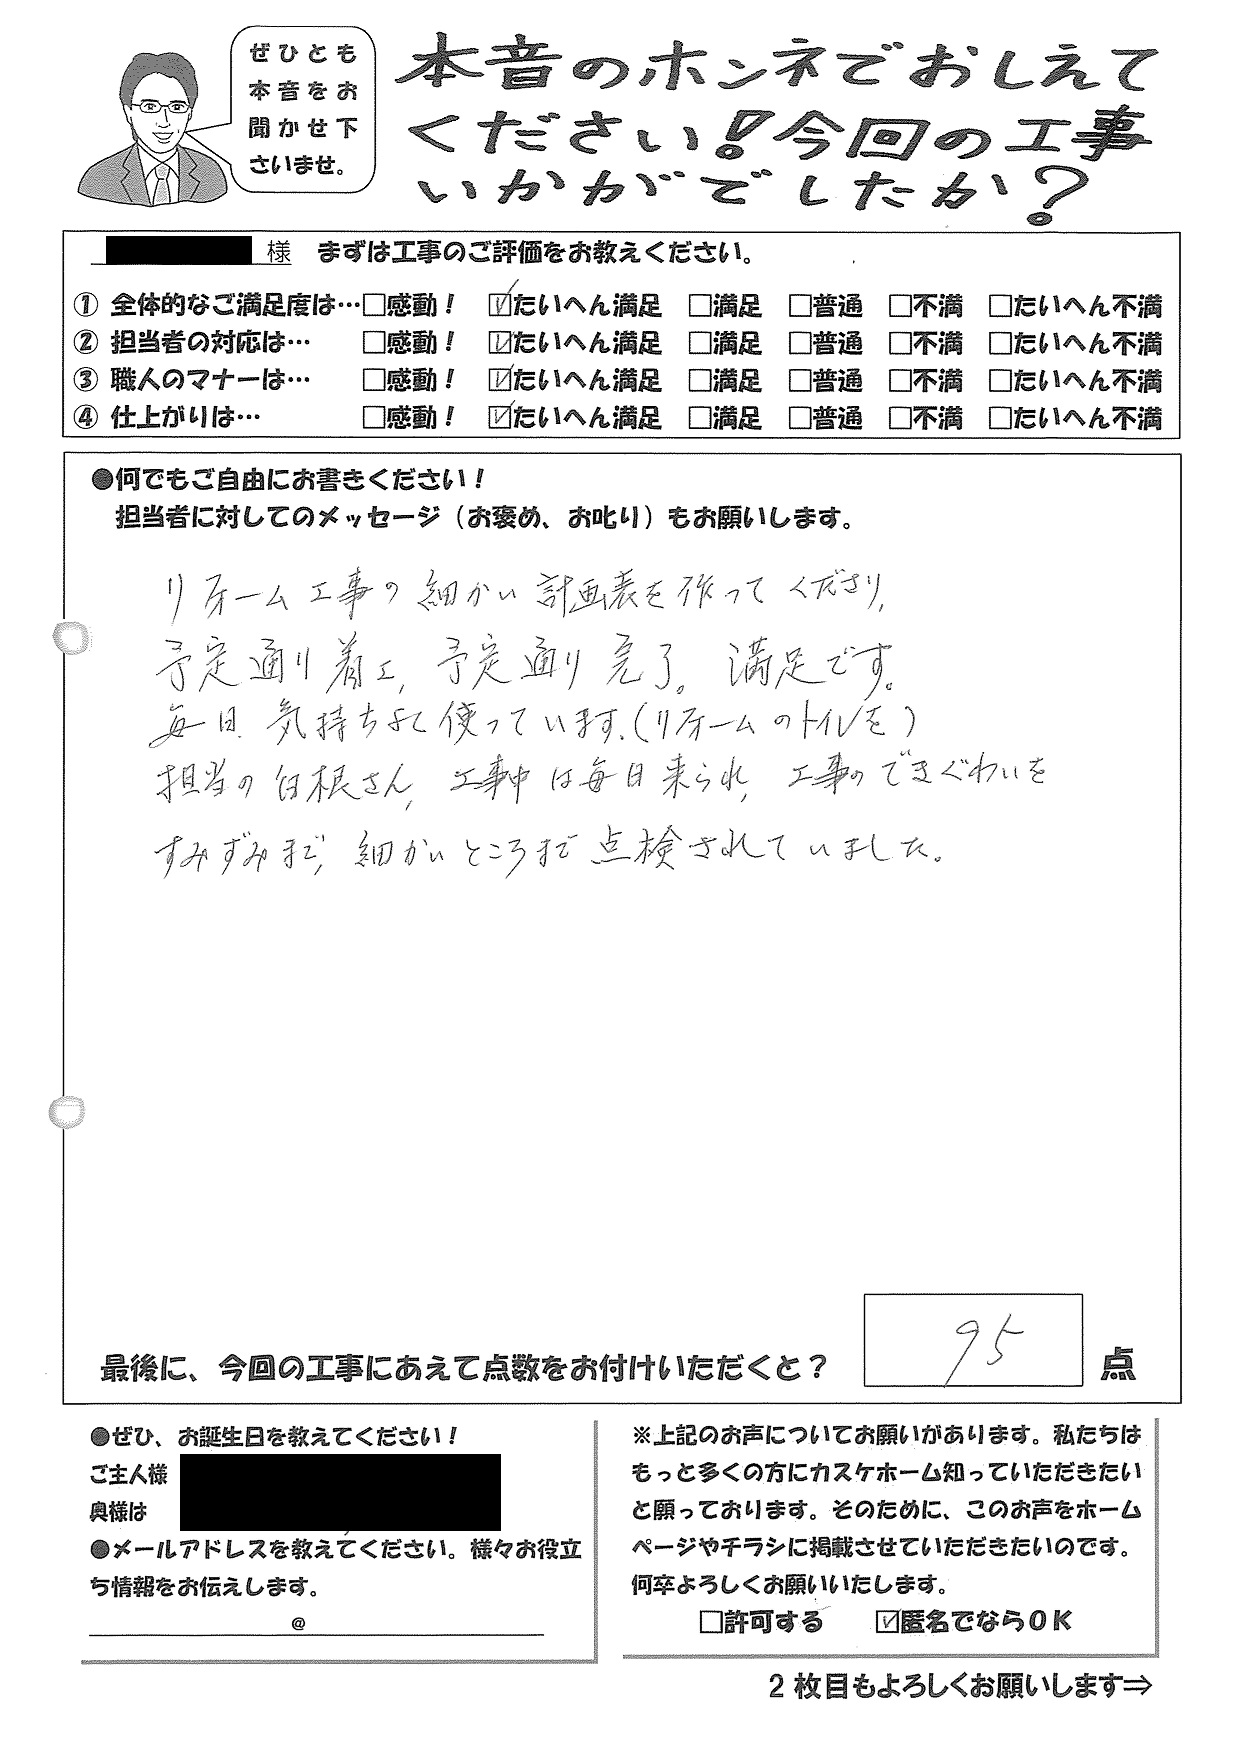 ぜひとも
本音をお
聞かせ下
さいませ。
本音のホンネでおしえて
ください!今回の工事
いかがでしたか?
様 まずは工事のご評価をお教えください。
① 全体的なご満足度は…□感動! ☑たいへん満足 □満足 □普通 □不満 □たいへん不満
② 担当者の対応は… □感動! ☑たいへん満足 □満足 □普通 □不満 □たいへん不満
③ 職人のマナーは… □感動! ☑たいへん満足 □満足 □普通 □不満 □たいへん不満
④ 仕上がりは… □感動! ☑たいへん満足 □満足 □普通 □不満 □たいへん不満
●何でもご自由にお書きください!
担当者に対してのメッセージ(お褒め、お叱り)もお願いします。
リフォーム工事の細かい計画表を作ってくださり、
予定通り着工、予定通り完了。満足です。
毎日気持ちよく使っています。(リフォームのトイレを)
担当の白根さん、工事中は毎日来られ、工事のできぐわいを
すみずみまで、細かいところまで点検されていました。
最後に、今回の工事にあえて点数をお付けいただくと? 95 点
●ぜひ、お誕生日を教えてください!
ご主人様
奥様は
●メールアドレスを教えてください。様々お役立
ち情報をお伝えします。
@
※上記のお声についてお願いがあります。私たちは
もっと多くの方にカスケホーム知っていただきたい
と願っております。そのために、このお声をホーム
ページやチラシに掲載させていただきたいのです。
何卒よろしくお願いいたします。
□許可する ☑匿名でならOK
2枚目もよろしくお願いします⇒